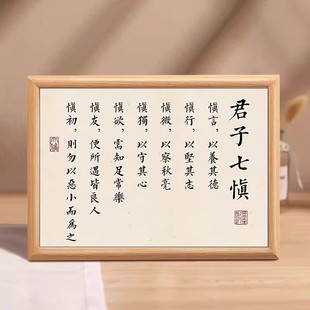 君子七慎
慎言，以養其德
慎行，以堅其志
慎微，以察秋亳
慎獨，以守其心
慎欲，需知足常樂
慎友，使所遇皆良人
慎初，則勿以惡小而為之